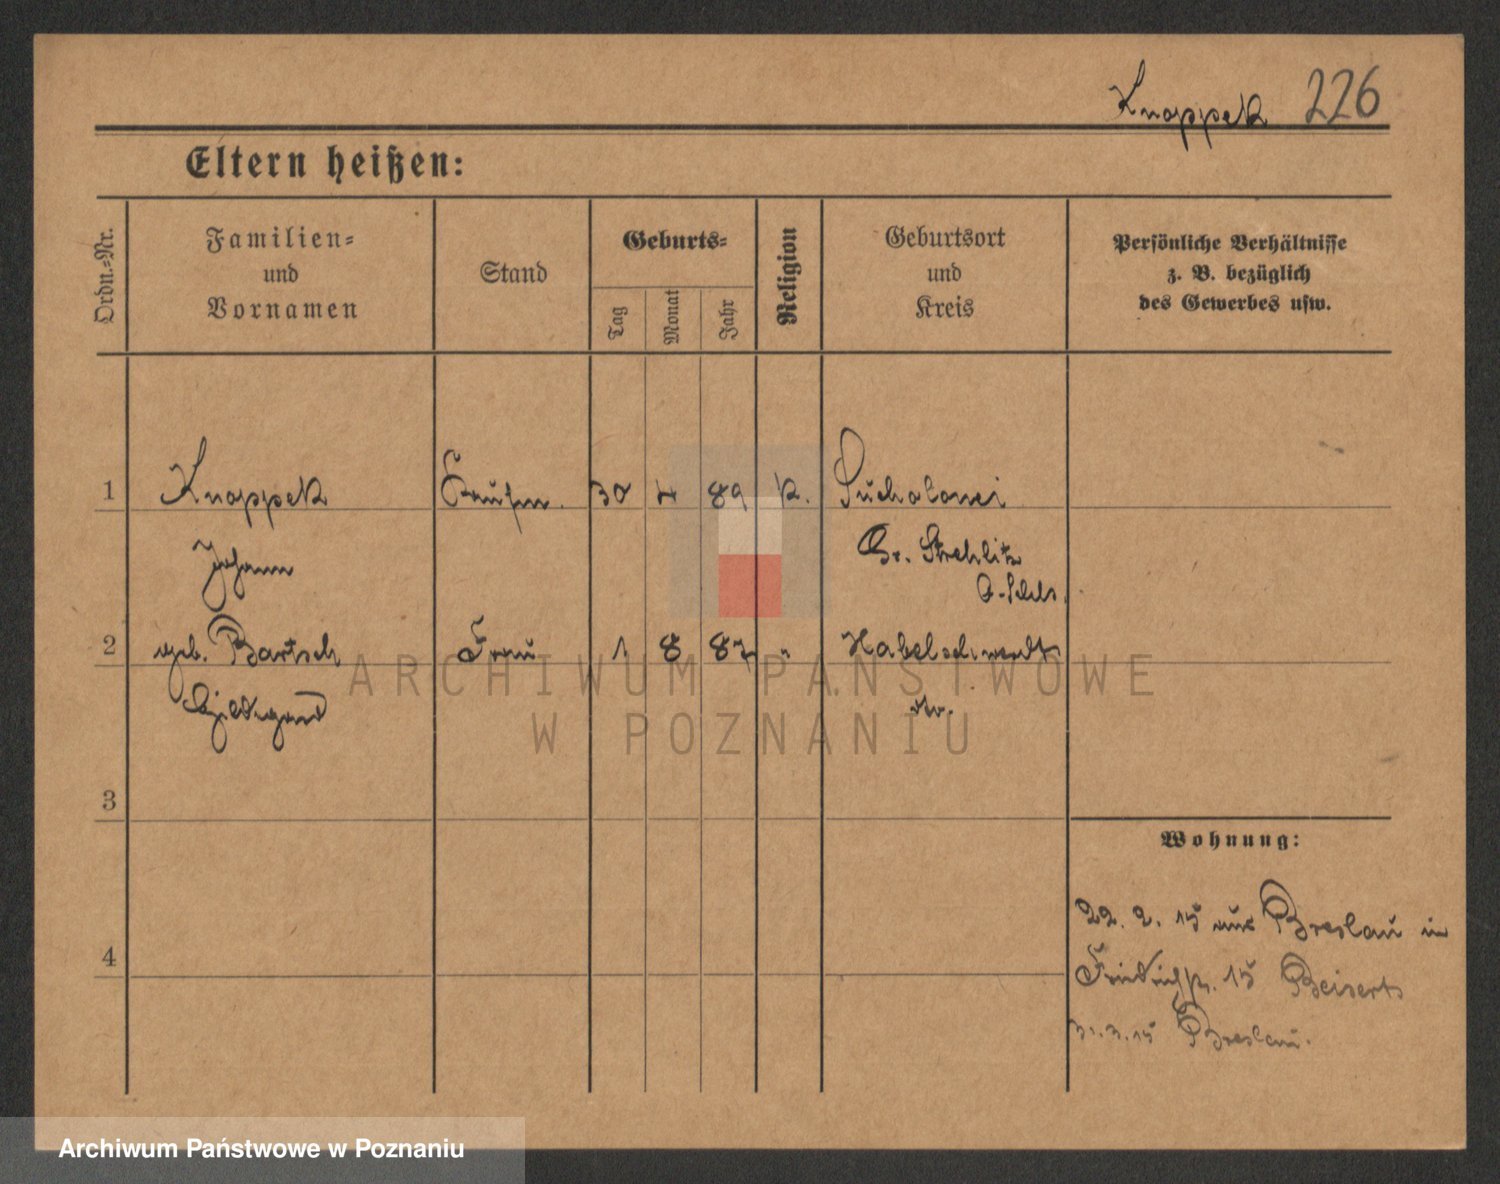 Knappek 226
Eltern heißen:
Ordn.=Nr.
Familien=
und
Vornamen
Stand
Geburts=
Tag
Monat
Jahr
Religion
Geburtsort
und
Kreis
Persönliche Verhältnisse
z. B. bezüglich
des Gewerbes usw.
1 Knappek Kaufm. 30 4 89 k. Sucholona
Johann Gr. Strehlitz
O.-Schls.
2 geb. Bartsch Frau 1 8 87 " Habelschwerdt
Hildegard
3
4
Wohnung:
22. 2. 15 aus Breslau in
Friedrichstr. 15 Beiserts
31. 3. 15 Breslau.
ARCHIWUM PAŃSTWOWE
W POZNANIU
Archiwum Państwowe w Poznaniu